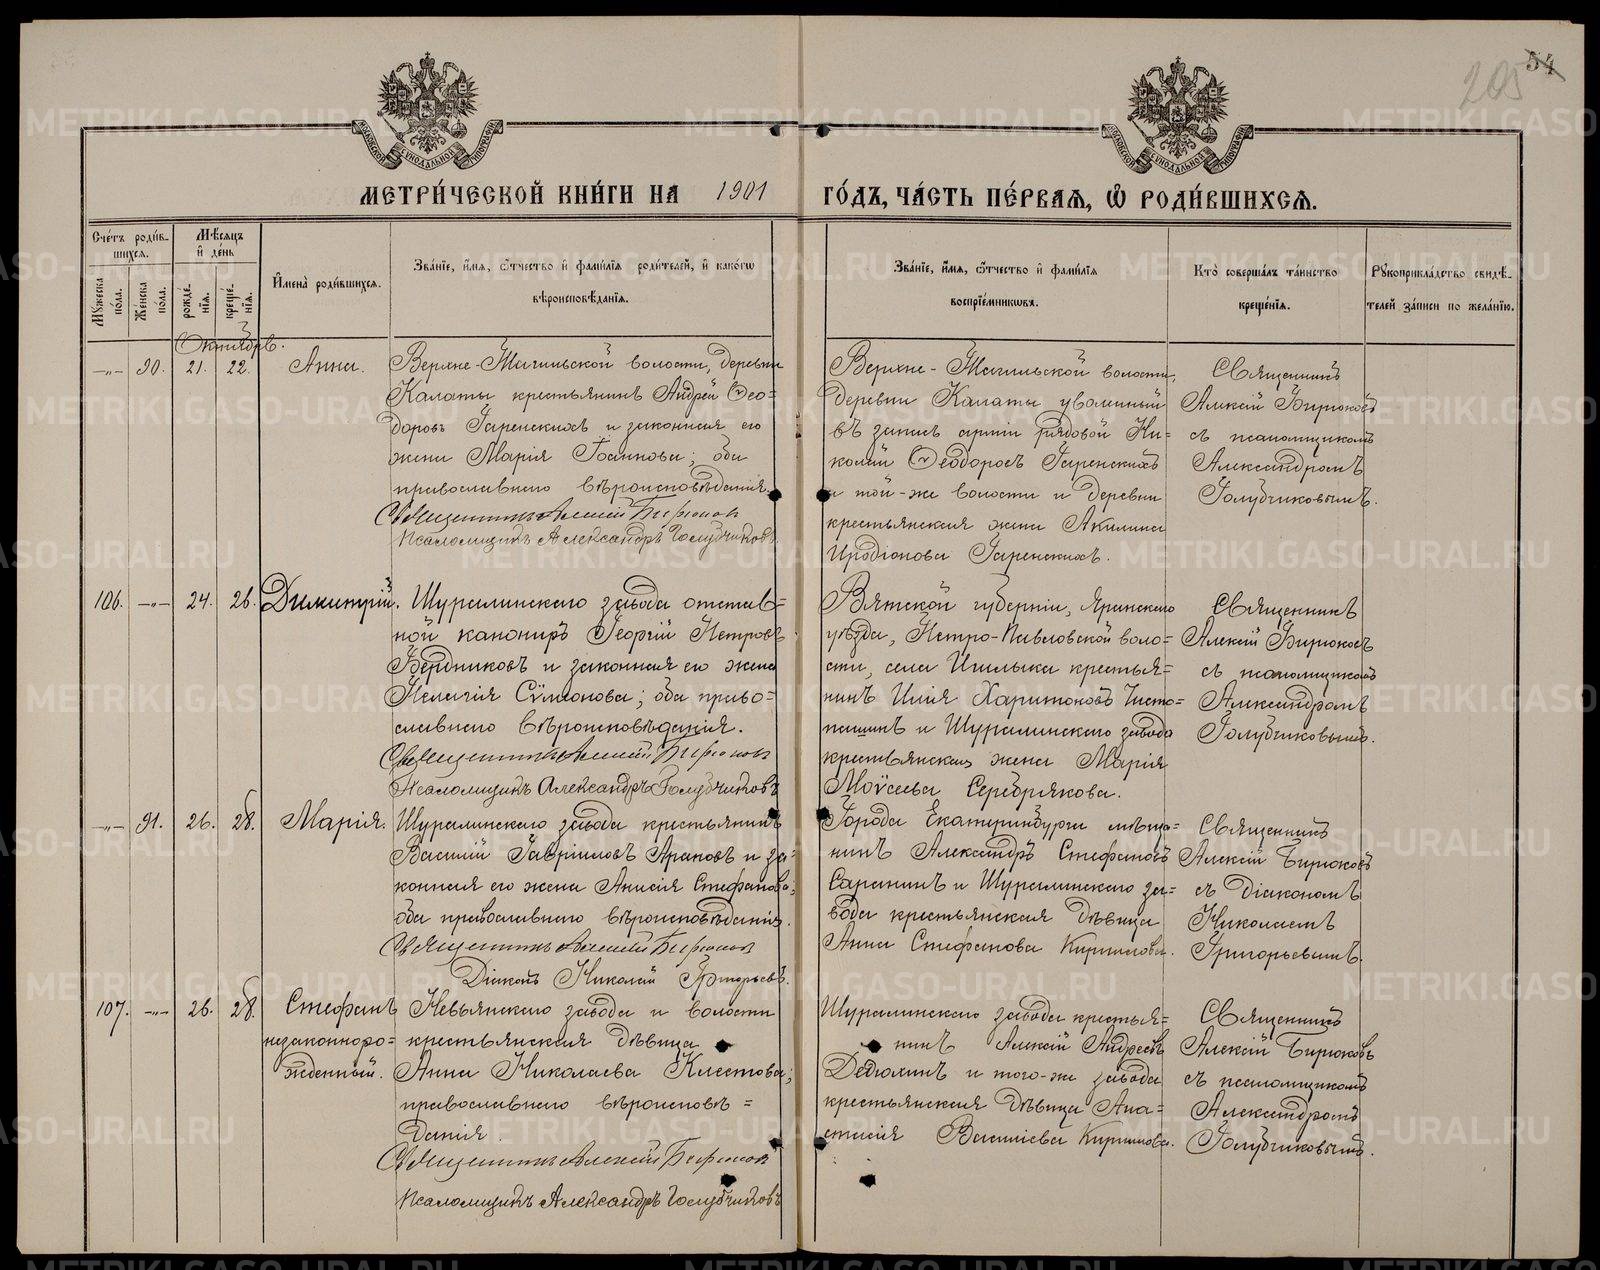 205 54
МОСКОВСКОЙ СѴНОДАЛЬНОЙ ТИПОГРАФІИ
МОСКОВСКОЙ СѴНОДАЛЬНОЙ ТИПОГРАФІИ
МЕТРИ́ЧЕСКОЙ КНИ́ГИ НА 1901 ГО́ДЪ, ЧА́СТЬ ПЕ́РВАѦ, Ѡ РОДИ́ВШИХСѦ.
Сче́тъ роди́в-
шихся.
Мꙋжеска по́ла.
Же́нска по́ла.
Мѣ́сяцъ
и҆ де́нь
рожде́-
нїя.
креще́-
нїя.
И҆мена̀ роди́вшихся.
Зва́нїе, и҆́мя, ѻ҆́тчество и҆ фамі́лїя роди́телей, и҆ како́гѡ
вѣроисповѣ́данїя.
Зва́нїе, и҆́мя, ѻ҆́тчество и҆ фамі́лїя
воспрїе́мникѡвъ.
Кто̀ соверша́лъ та́инство
креще́нїя.
Рꙋкоприкла́дство свидѣ́-
телей за́писи по жела́нїю.
Октябрь.
—„— 90. 21. 22. Анна.
Верхне-Тагильской волости, деревни
Калаты крестьянинъ Андрей Ѳео-
доровъ Гаренскихъ и законная его
жена Марія Іоаннова; оба
православнаго вѣроисповѣданія.
Священникъ Алексій Бирюковъ
Псаломщикъ Александръ Голубчиковъ
Верхне-Тагильской волости,
деревни Калаты уволенный
въ запасъ арміи рядовой Ни-
колай Ѳеодоровъ Гаренскихъ
и той-же волости и деревни
крестьянская жена Акилина
Иродіонова Гаренскихъ.
Священникъ
Алексій Бирюковъ
съ псаломщикомъ
Александромъ
Голубчиковымъ.
106. —„— 24. 26. Димитрій.
Шуралинскаго завода отстав-
ной канониръ Георгій Петровъ
Бердниковъ и законная его жена
Пелагія Сѵмонова; оба право-
славнаго вѣроисповѣданія.
Священникъ Алексій Бирюковъ
Псаломщикъ Александръ Голубчиковъ
Вятской губерніи, Яранскаго
уѣзда, Петро-Павловской воло-
сти, села крестья-
нинъ Илія Харитоновъ Чисто-
пашинъ и Шуралинскаго завода
крестьянская жена Марія
Моѵсеева Серебрякова.
Священникъ
Алексій Бирюковъ
съ псаломщикомъ
Александромъ
Голубчиковымъ.
—„— 91. 26. 28. Марія.
Шуралинскаго завода крестьянинъ
Василій Гавріиловъ Араповъ и за-
конная его жена Анисія Стефанова;
оба православнаго вѣроисповѣданія.
Священникъ Алексій Бирюковъ
Діаконъ Николай Григорьевъ.
Города Екатеринбурга мѣща-
нинъ Александръ Стефановъ
Саранинъ и Шуралинскаго за-
вода крестьянская дѣвица
Анна Стефанова Кириллова.
Священникъ
Алексій Бирюковъ
съ діакономъ
Николаемъ
Григорьевымъ.
107. —„— 26. 28. Стефанъ
незаконноро-
жденный.
Невьянскаго завода и волости
крестьянская дѣвица
Анна Николаева Клестова;
православнаго вѣроисповѣ-
данія.
Священникъ Алексій Бирюковъ
Псаломщикъ Александръ Голубчиковъ
Шуралинскаго завода крестья-
нинъ Алексій Андреевъ
Дедюхинъ и того-же завода
крестьянская дѣвица Ана-
стасія Васильева Кириллова.
Священникъ
Алексій Бирюковъ
съ псаломщикомъ
Александромъ
Голубчиковымъ.
METRIKI.GASO-URAL.RU